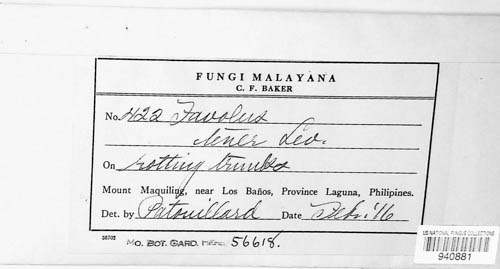 FUNGI MALAYANA
C. F. BAKER
No. 422 Favolus
tener Lev.
On rotting trunks
Mount Maquiling, near Los Baños, Province Laguna, Philipines.
Det. by Patouillard Date Feb. '16
26702
MO. BOT. GARD. HERB. 56618.
US NATIONAL FUNGUS COLLECTIONS
940881